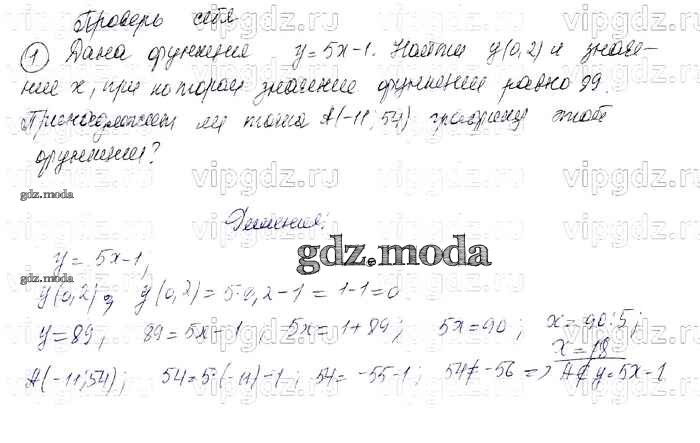 Проверь себя
① Дана функция y=5x-1. Найти y(0,2) и значе-
ние x, при котором значение функции равно 89.
Принадлежит ли точка A(-11; 54) графику этой
функции?
gdz.moda
Решение:
gdz.moda
y = 5x-1,
y(0,2) y(0,2) = 5·0,2-1 = 1-1=0
y=89, 89=5x-1 5x=1+89; 5x=90; x=90:5;
x=18
A(-11;54); 54=5·(-11)-1; 54= -55-1; 54≠-56 => A∉y=5x-1
vipgdz.ru